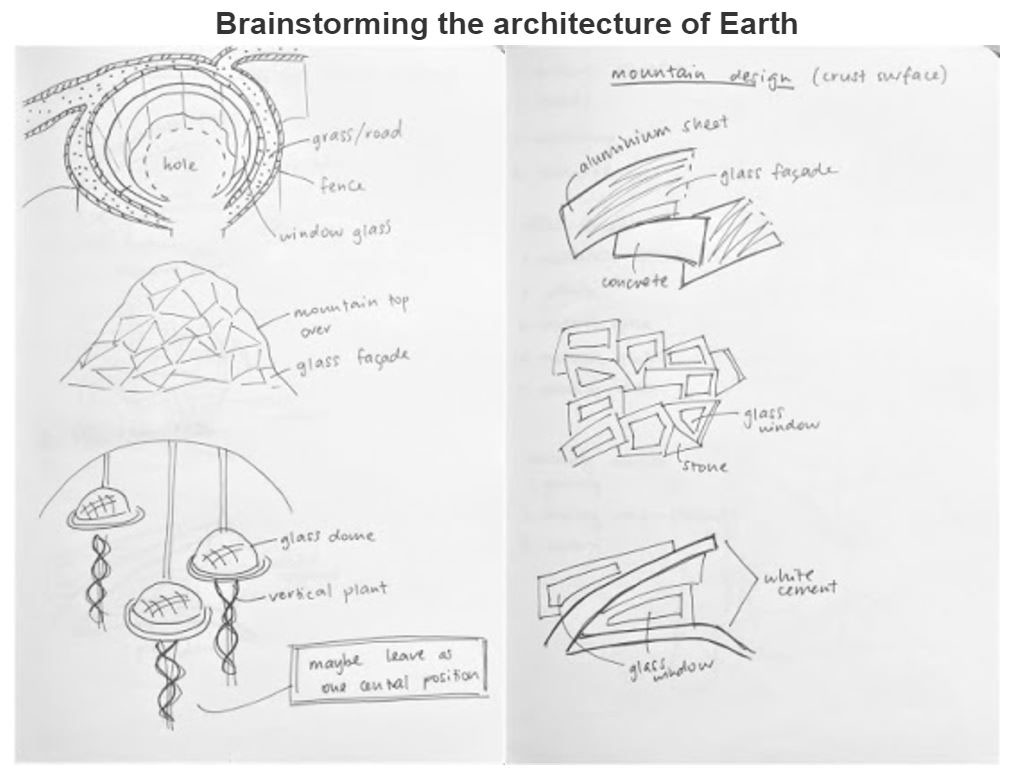 Brainstorming the architecture of Earth
hole
grass/road
fence
window glass
mountain top
over
glass façade
glass dome
vertical plant
maybe leave as
one central position
mountain design (crust surface)
aluminium sheet
glass façade
concrete
glass
window
stone
white
cement
glass
window